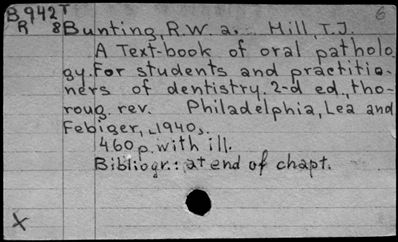 B942T 6
R 8 Bunting, R.W. a. Hill, T.J.
A Text-book of oral patholo-
gy. For students and practitio-
ners of dentistry. 2-d ed., tho-
roug. rev. Philadelphia, Lea and
Febiger, [1940].
460 p. with ill.
Bibliogr.: at end of chapt.
X